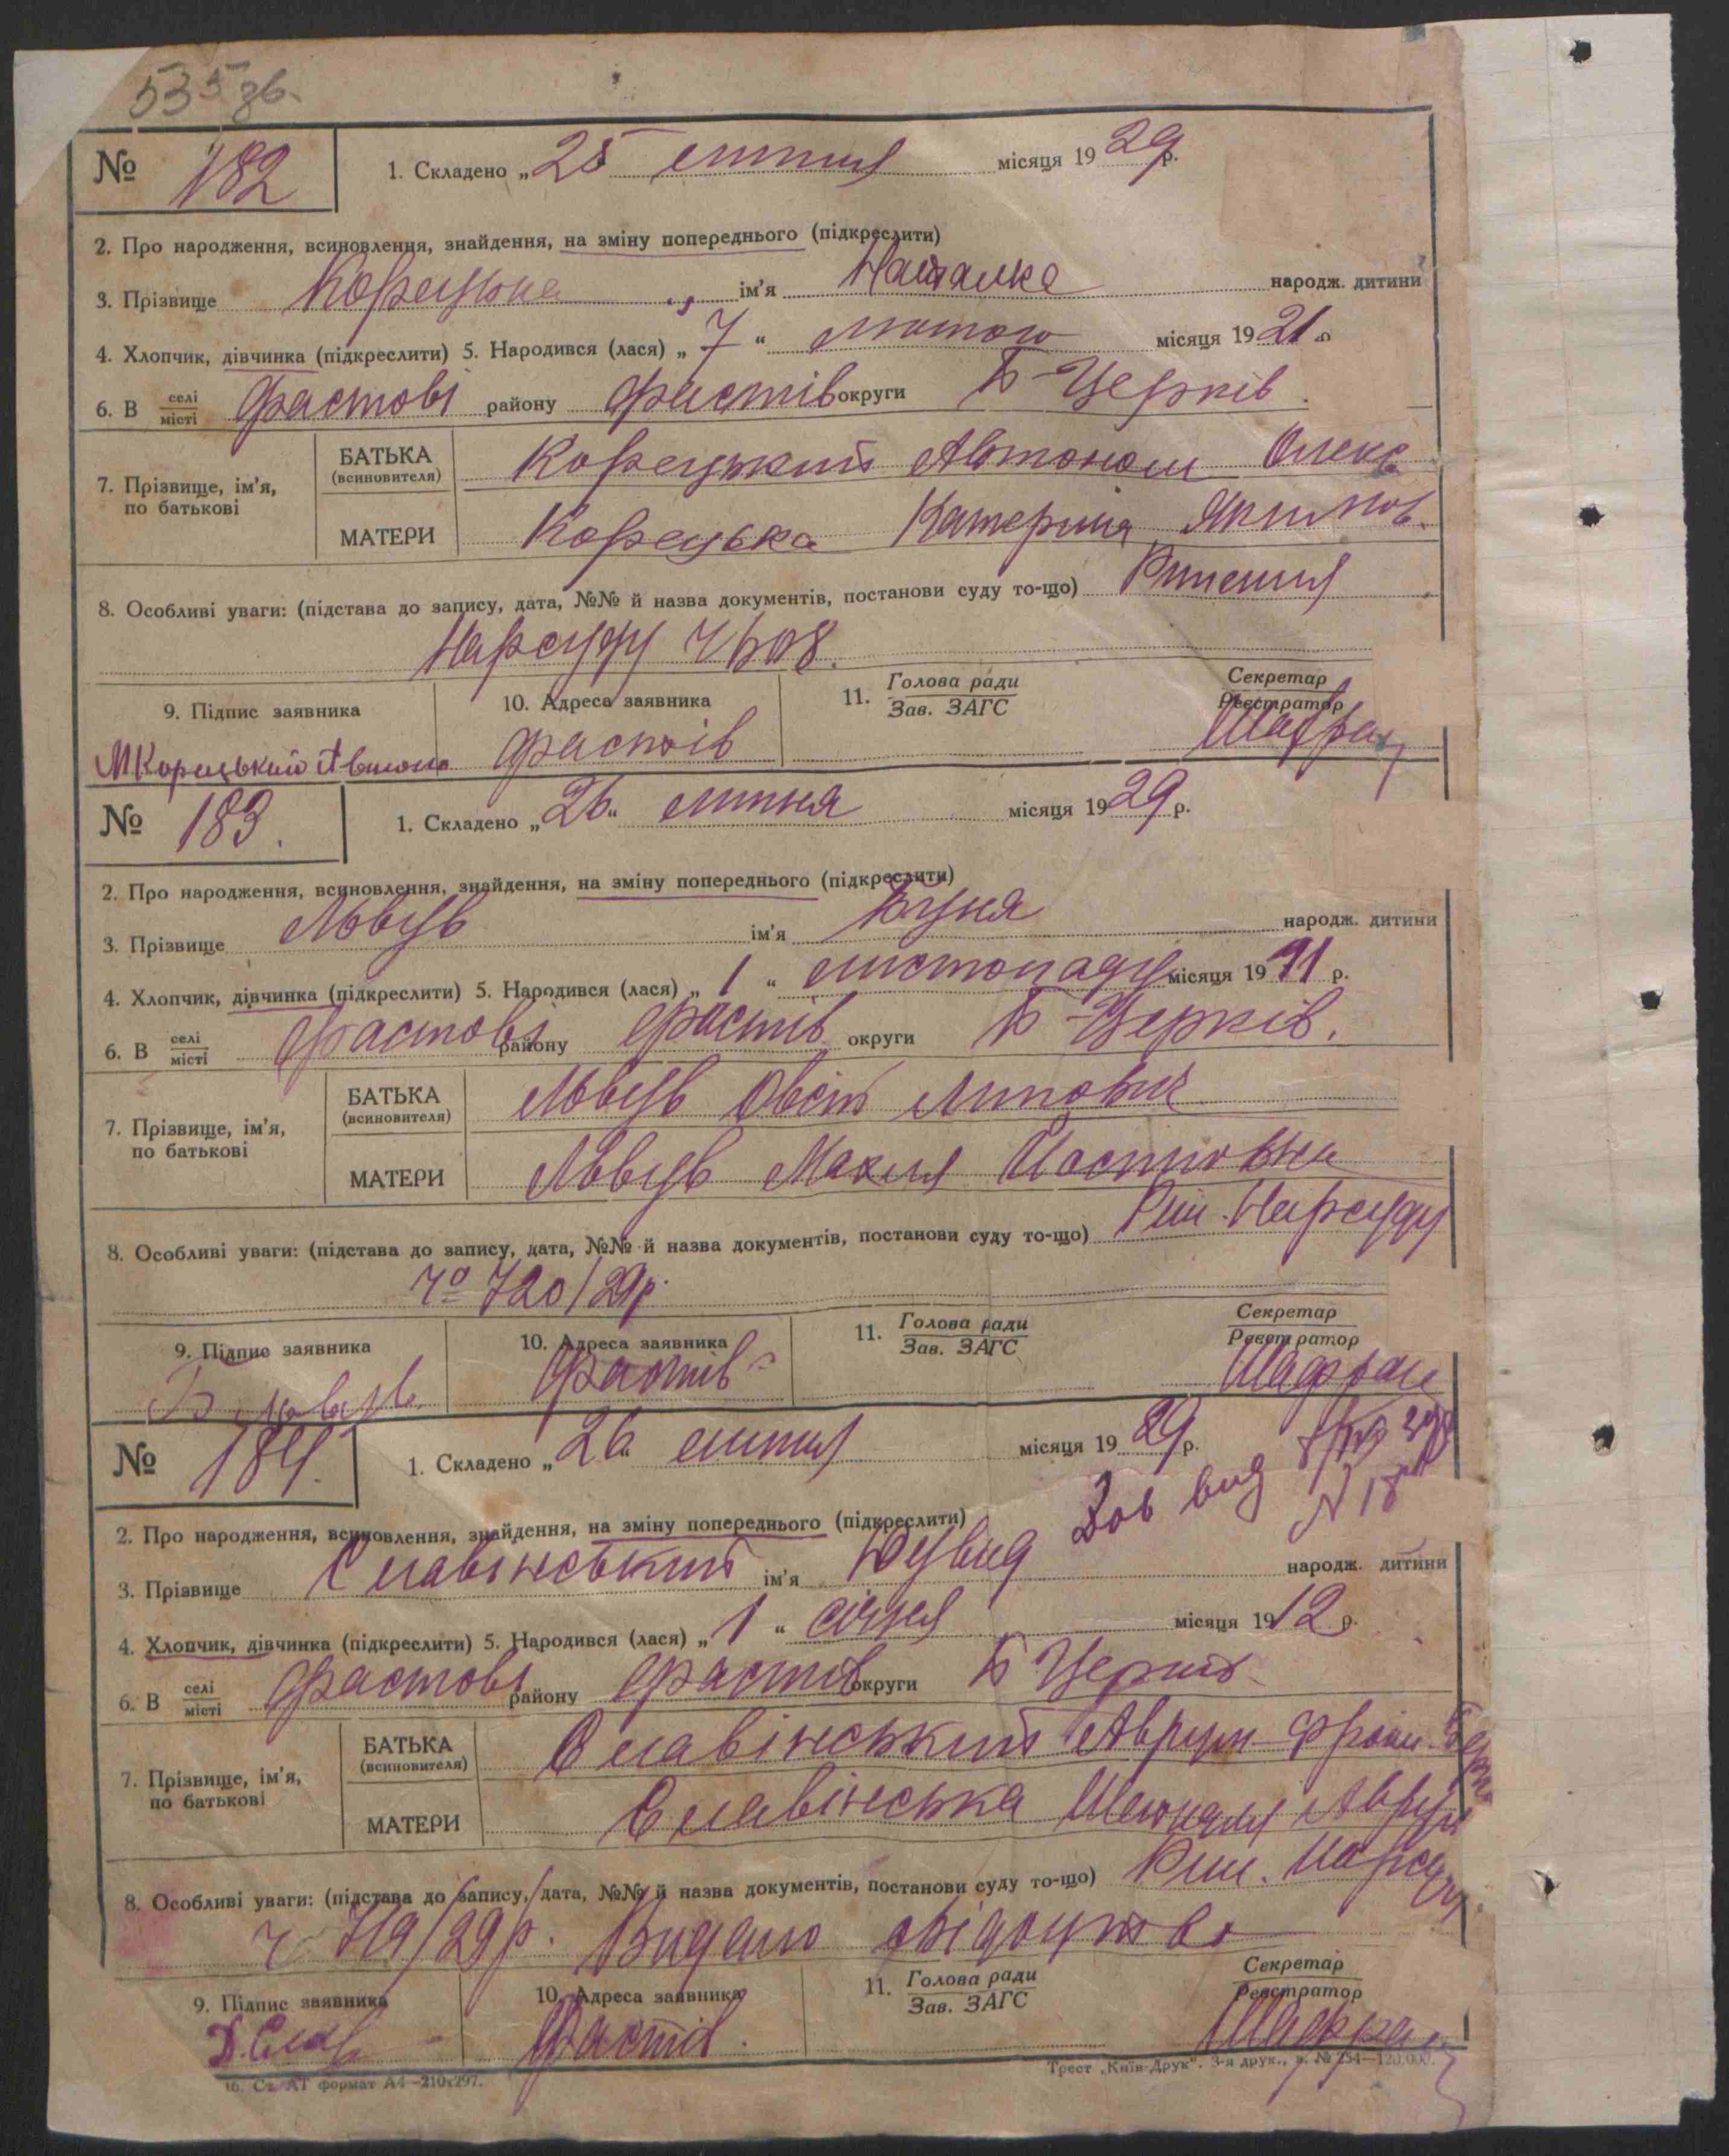 535 зв.
№ 182
1. Складено „ 25 липня місяця 1929 р.
2. Про народження, всиновлення, знайдення, на зміну попереднього (підкреслити)
3. Прізвище Корецька ім'я Наталка народж. дитини
4. Хлопчик, дівчинка (підкреслити) 5. Народився (лася) „ 7 “ лютого місяця 1921 р.
6. В селі місті Фастові району Фастів округи Б-Церків.
7. Прізвище, ім'я, по батькові
БАТЬКА (всиновителя) Корецький Автоном Олекс
МАТЕРИ Корецька Катерина Якимов.
8. Особливі уваги: (підстава до запису, дата, №№ й назва документів, постанови суду то-що) Рішення
Нарсуду
9. Підпис заявника 10. Адреса заявника 11. Голова ради Зав. ЗАГС Секретар Реєстратор
Корецький Автоно Фастів Шафран
№ 183.
1. Складено „ 26 “ липня місяця 1929 р.
2. Про народження, всиновлення, знайдення, на зміну попереднього (підкреслити)
3. Прізвище Львув ім'я Буня народж. дитини
4. Хлопчик, дівчинка (підкреслити) 5. Народився (лася) „ 1 “ листопаду місяця 1911 р.
6. В селі місті Фастові району Фастів округи Б-Церків.
7. Прізвище, ім'я, по батькові
БАТЬКА (всиновителя) Львув
МАТЕРИ Львув Махля
8. Особливі уваги: (підстава до запису, дата, №№ й назва документів, постанови суду то-що) Риш. Нарсуду
720/29р.
9. Підпис заявника 10. Адреса заявника 11. Голова ради Зав. ЗАГС Секретар Реєстратор
Фастів Шафран
№ 184.
1. Складено „ 26 “ липня місяця 1929 р.
2. Про народження, всиновлення, знайдення, на зміну попереднього (підкреслити)
3. Прізвище Славінський ім'я Дувид народж. дитини
4. Хлопчик, дівчинка (підкреслити) 5. Народився (лася) „ 1 “ січня місяця 1912 р.
6. В селі місті Фастові району Фастів округи Б Церків
7. Прізвище, ім'я, по батькові
БАТЬКА (всиновителя) Славінський Аврум-Фроим
МАТЕРИ Славінська Аврум
8. Особливі уваги: (підстава до запису, дата, №№ й назва документів, постанови суду то-що) Риш. Нарсуду
719/29р. Видано свідоцтво
9. Підпис заявника 10. Адреса заявника 11. Голова ради Зав. ЗАГС Секретар Реєстратор
Д. Слав Фастів. Шафран
16. Ст. АТ формат А4—210х297. Трест „Київ-Друк“. 3-я друк., з. № 254—120.000.